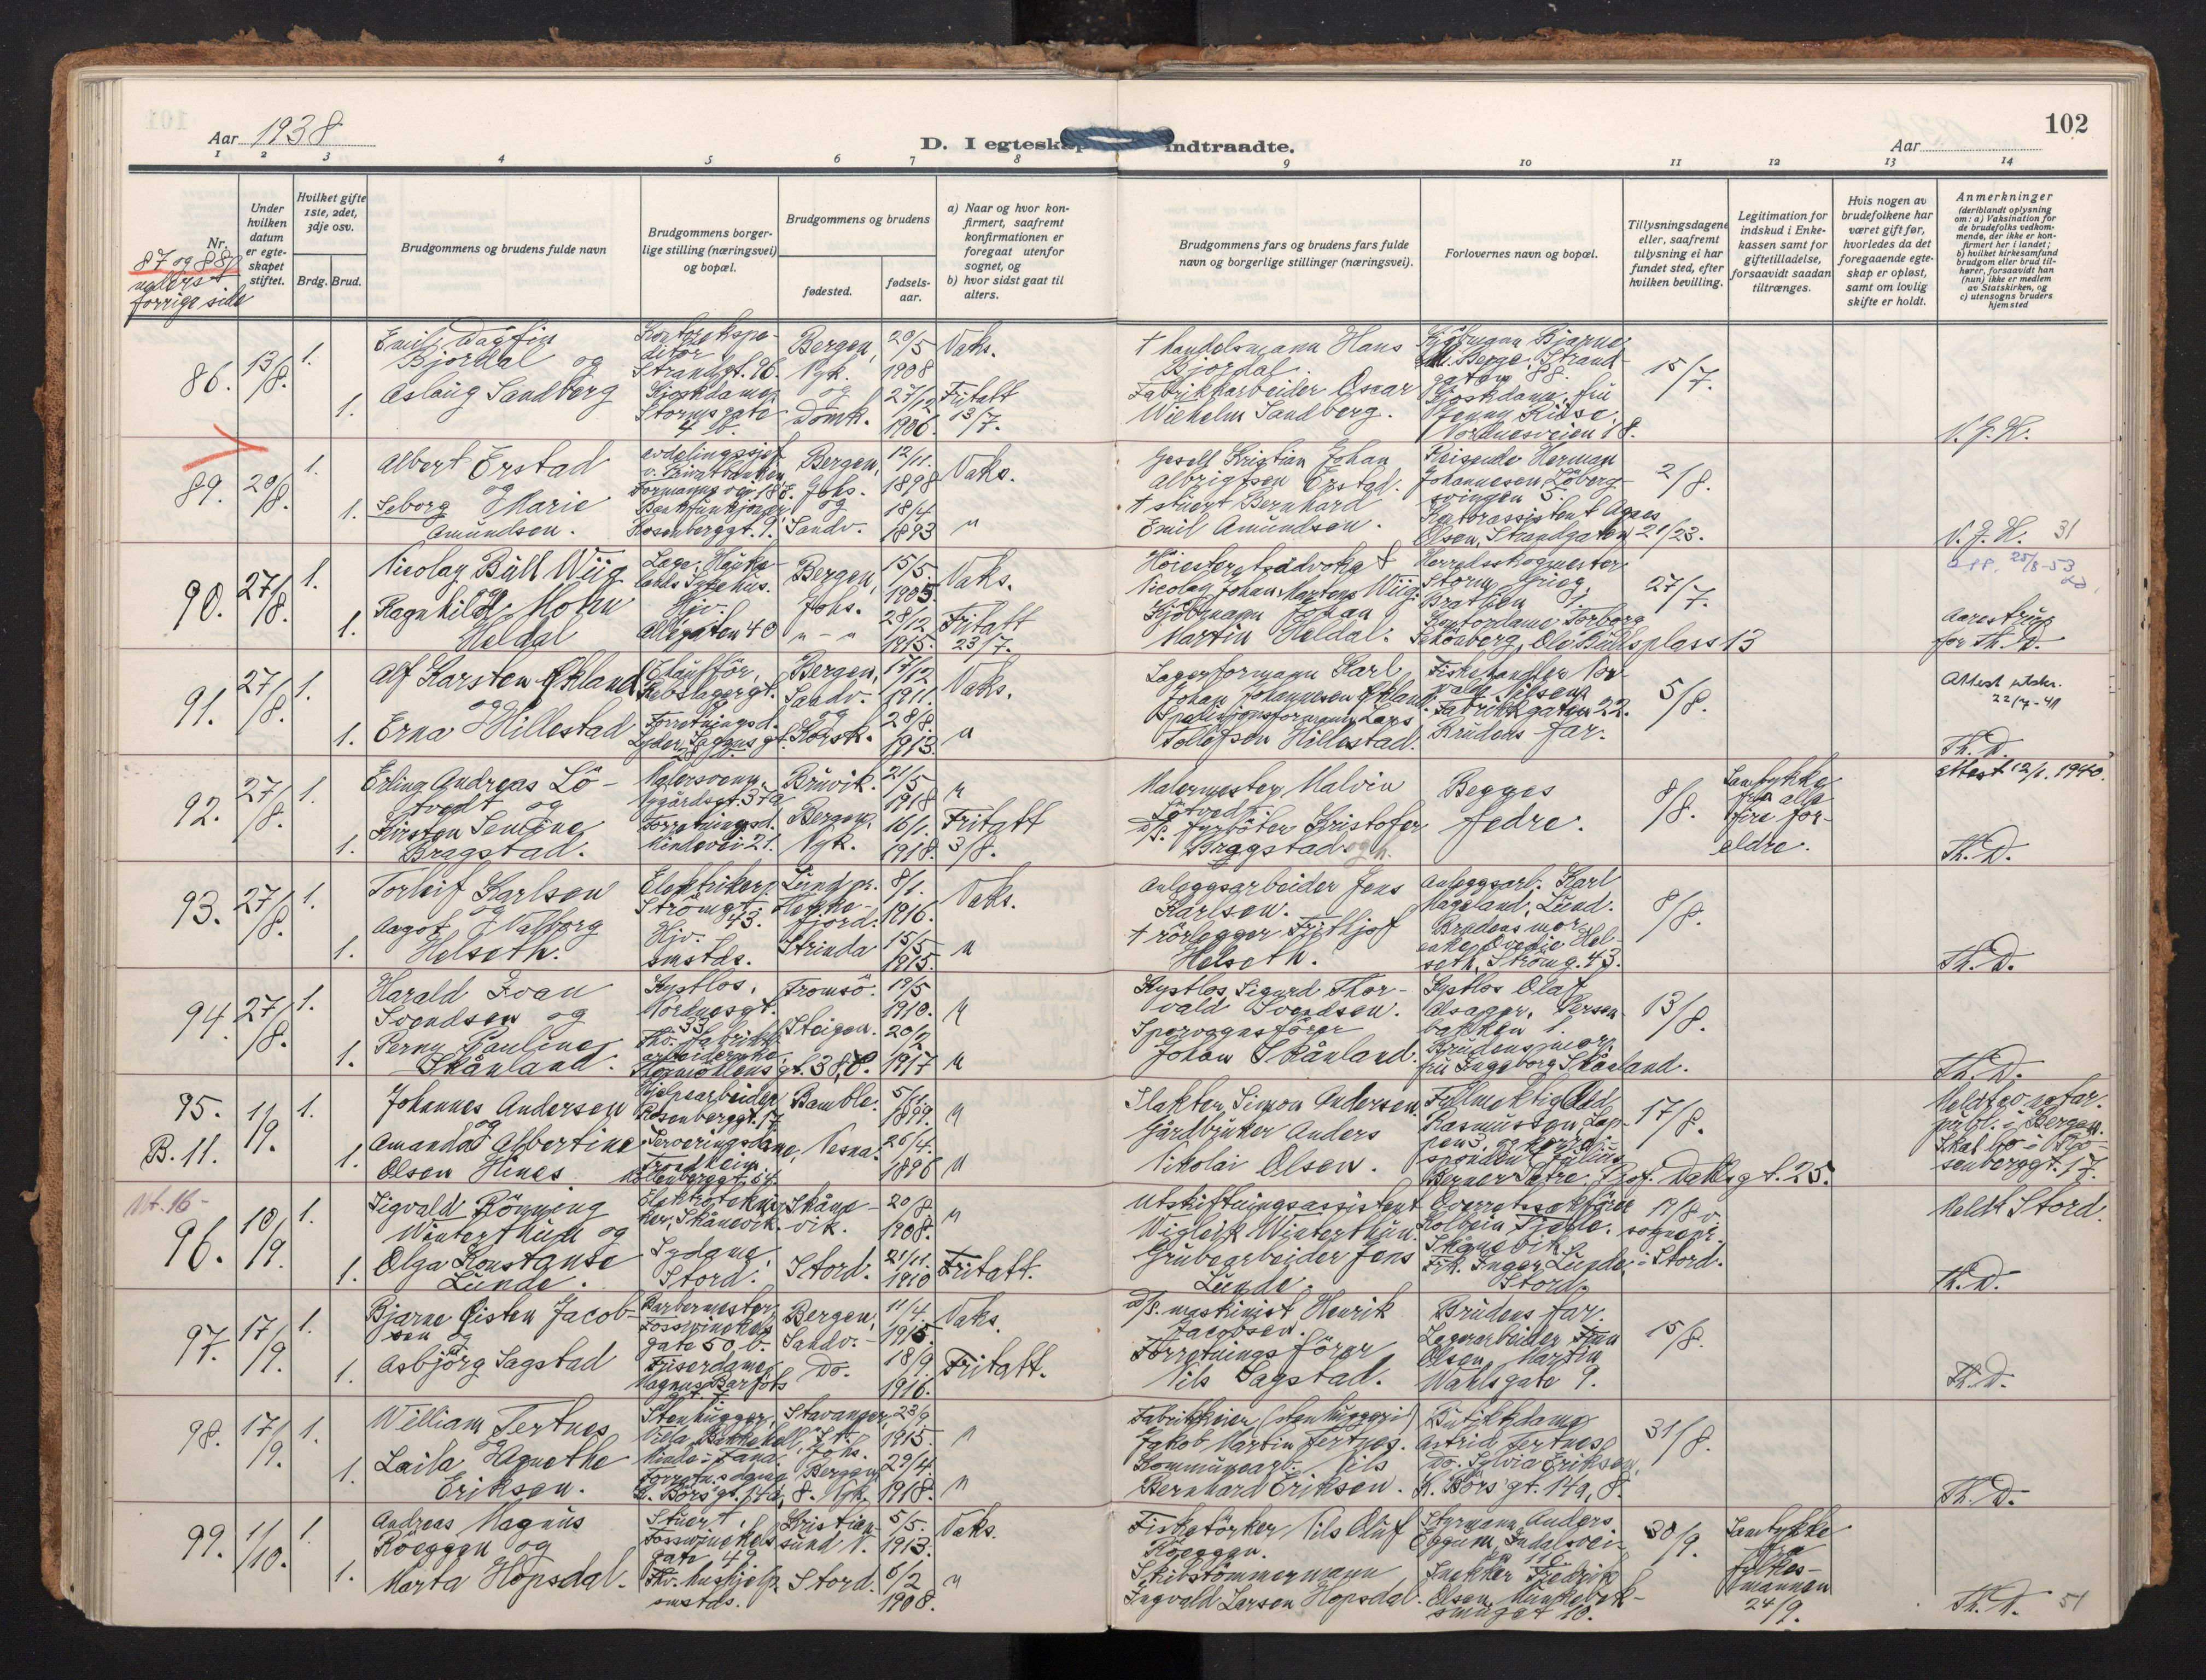 102
Aar 1938
D. I egteskap indtraadte.
Aar
1 2 3 4 5 6 7 8 9 10 11 12 13 14
Nr.
Under hvilken datum er egteskapet stiftet.
Hvilket gifte 1ste, 2det, 3dje osv.
Brdg. Brud.
Brudgommens og brudens fulde navn
Brudgommens borgerlige stilling (næringsvei) og bopæl.
Brudgommens og brudens
fødested.
fødsels-aar.
a) Naar og hvor konfirmert, saafremt konfirmationen er foregaat utenfor sognet, og
b) hvor sidst gaat til alters.
Brudgommens fars og brudens fars fulde navn og borgerlige stillinger (næringsvei).
Forlovernes navn og bopæl.
Tillysningsdagene eller, saafremt tillysning ei har fundet sted, efter hvilken bevilling.
Legitimation for indskud i Enkekassen samt for giftetilladelse, forsaavidt saadan tiltrænges.
Hvis nogen av brudefolkene har været gift før, hvorledes da det foregaaende egteskap er opløst, samt om lovlig skifte er holdt.
Anmerkninger
(deriblandt oplysning om: a) Vaksination for de brudefolks vedkommende, der ikke er konfirmert her i landet; b) hvilket kirkesamfund brudgom eller brud tilhører, forsaavidt han (hun) ikke er medlem av Statskirken, og c) utensogns bruders hjemsted
87 og 88
nederst
forrige side
86. 13/8. 1. Emil Dagfin Bjordal og
Strandgt. 96. Bergen, Nyk. 20/5 1908 Vaks.
† Handelsmann Hans Bjordal.
Kjøbmann Bjarne M. Berge, Strandgaten 88.
15/7.
1. Aslaug Sandberg
Kioskdame, Storms gate 4 b. og Domk. 27/12 1906. Fritatt 13/7.
Fabrikkarbeider Oscar Wilhelm Sandberg.
Kioskdame, fru Jenny Riise, Nordnesveien 18.
N. J. H.
89. 20/8. 1. Albert Erstad og
avdelingssjef v. Privatbanken Bergen, Johs. og 12/11. 1898 Vaks.
Gesell Kristian Johan Albrigtsen Erstad.
Reisende Herman Johannesen, Løbergsvingen 5.
2/8.
1. Seborg Marie Amundsen.
Rosenberggt. 9. Sandv. 18/4 1893 "
† stuert Bernhard Emil Amundsen.
Kontorassistent Agnes Olsen, Strandgaten 21/23.
N. J. H. 31
90. 27/8. 1. Nicolay Büll Wiig og
Lege, Haukelands Sykehus. Bergen, Johs. 15/5. 1905 Vaks.
Høiesterettsadvokat Nicolay Johan Martens Wiig.
Herredsskogmester Storm Grieg, Bratlien 1.
27/7.
25/8-53
1. Ragnhild Mohn Heldal
Hjv. Allégaten 40 " - " 28/12 1915. Fritatt 23/7.
Kjøbmann Johan Martin Heldal.
Kontordame Torborg Schönberg, Ole Bulls plass 13
Aarestrup for Th. D.
91. 27/8. 1. Alf Karsten Økland og
Chauffør, Rebslagergt. Bergen, Sandv. og 17/12 1911. Vaks.
Lagerformann Karl Johan Johannesen Økland.
Fabrikkgaten 22.
5/8.
Attest utst. 22/7-41
1. Erna Hillestad
Forretningsd. Lyder Sagens gt. Korsk. 28/8. 1913. "
Lars Tollefsen Hillestad.
Brudens far.
Th. D.
92. 27/8. 1. Erling Andreas Lötvedt og
Malersvenn, Nygårdsgt. 37a Bruvik. 21/5 1918 "
Malermester Malvin Lötvedt.
Begges fedre.
8/8.
Samtykke fra alle fire foreldre.
attest 12/1. 1940.
1. Kirsten Semine Bragstad.
Forretningsd. Mindevei 21. Bergen, Nyk. 16/1. 1918. Fritatt 3/8.
d/s. fyrböter Kristofer Bragstad.
Th. D.
93. 27/8. 1. Torleif Karlsen og
Elektriker, Strömgt. 43. Lund pr. 8/1. 1916. Vaks.
Anleggsarbeider Jens Karlsen.
Anleggsarb. Karl Hageland, Lund.
8/8.
1. Aagot Valborg Helseth.
Hjv. smstds. Strinda 15/5 1915. "
† rörlegger Fritjof Helseth.
Brudens mor, enke Ovedie Helseth, Strömg. 43.
Th. D.
94. 27/8. 1. Harald Ivan Svendsen og
Kystlos, Nordnesgt. 33. Tromsö. 19/5 1910. "
Kystlos Sigurd Thorvald Svendsen.
Kystlos Olaf Olsager, Persenbakken 1.
13/8.
1. Perny Pauline Skånland.
Steigen. 20/2 1917 "
Sporvognsförer Johan Skånland.
Brudens mor, fru Ingeborg Skånland.
Th. D.
95. B. 11. 1/9. 1. Johannes Andersen og
Hjelpearbeider Rosenberggt. 17 Bamble. 5/11. 1899. "
Slakter Simon Andersen.
17/8.
1. Amanda Albertine Olsen Hines.
Serveringsdame, Trondheim, Möllenberggt. 54. Nesna. 26/4. 1896 "
Gårdbruker Anders Nikolai Olsen.
Berner Sætre, Prof. Dahls gt. 25.
Skal bo i Rosenberggt. 17.
Nt. 16-
96. 10/9. 1. Sigvald Rönning Winterthun og
Elektrotekniker, Skånevik Skånevik. 20/8. 1908. "
Utskiftningsassistent Vigleik Winterthun.
Overrettssakförer Kolbein Fjæle, Skånevik.
17/8 v. sognepr. i Stord.
Meldt Stord.
1. Olga Konstanse Lunde.
Sydame, Stord. Stord. 21/11. 1910 Fritatt.
Grubearbeider Jens Lunde.
Frk. Inger Lunde, Stord.
Th. D.
97. 17/9. 1. Bjarne Øisten Jacobsen og
Barbermester, Fosswinckels gate 50. b. Bergen, Sandv. 11/4. 1915. Vaks.
d/s. maskinist Henrik Jacobsen.
Brudens far.
15/8.
1. Asbjörg Sagstad
Friserdame, Magnus Barfots gt. Do. 18/9. 1916. Fritatt.
Forretningsförer Nils Sagstad.
Lagerarbeider Olsen, Martin Wahlsgate 9.
Th. D.
98. 17/9. 1. William Tertnes og
Stenhugger, Minde i Fana. Stavanger, 23/9 1915. "
Fabrikkeier (stenhuggeri) Jakob Martin Tertnes.
Butikkdame Astrid Tertnes
31/8.
1. Laila Agnethe Eriksen.
K. Börs gt. 14a, 8. Bergen, Nyk. 29/4. 1918. "
Kommunearb. Nils Bernhard Eriksen.
Do. Sylvia Eriksen, K. Börs gt. 14a, 8.
Th. D.
99. 1/10. 1. Andreas Magnus Röeggen og
Stuert, Fosswinckels gate 49. Kristiansund N. 5/5. 1913. Vaks.
Fisketörker Nils Oluf Röeggen.
Styrmann Anders Eggum, Indalsvei 110
30/9.
Samtykke fra fylkesmannen 24/9.
1. Marta Hopsdal.
Fhv. hushjelp smstds. Stord. 6/2 1908. "
Skibstömmermann Ingvald Larsen Hopsdal.
Snekker Fredrik Olsen, Munkebotsmuget 10.
Th. D. 51